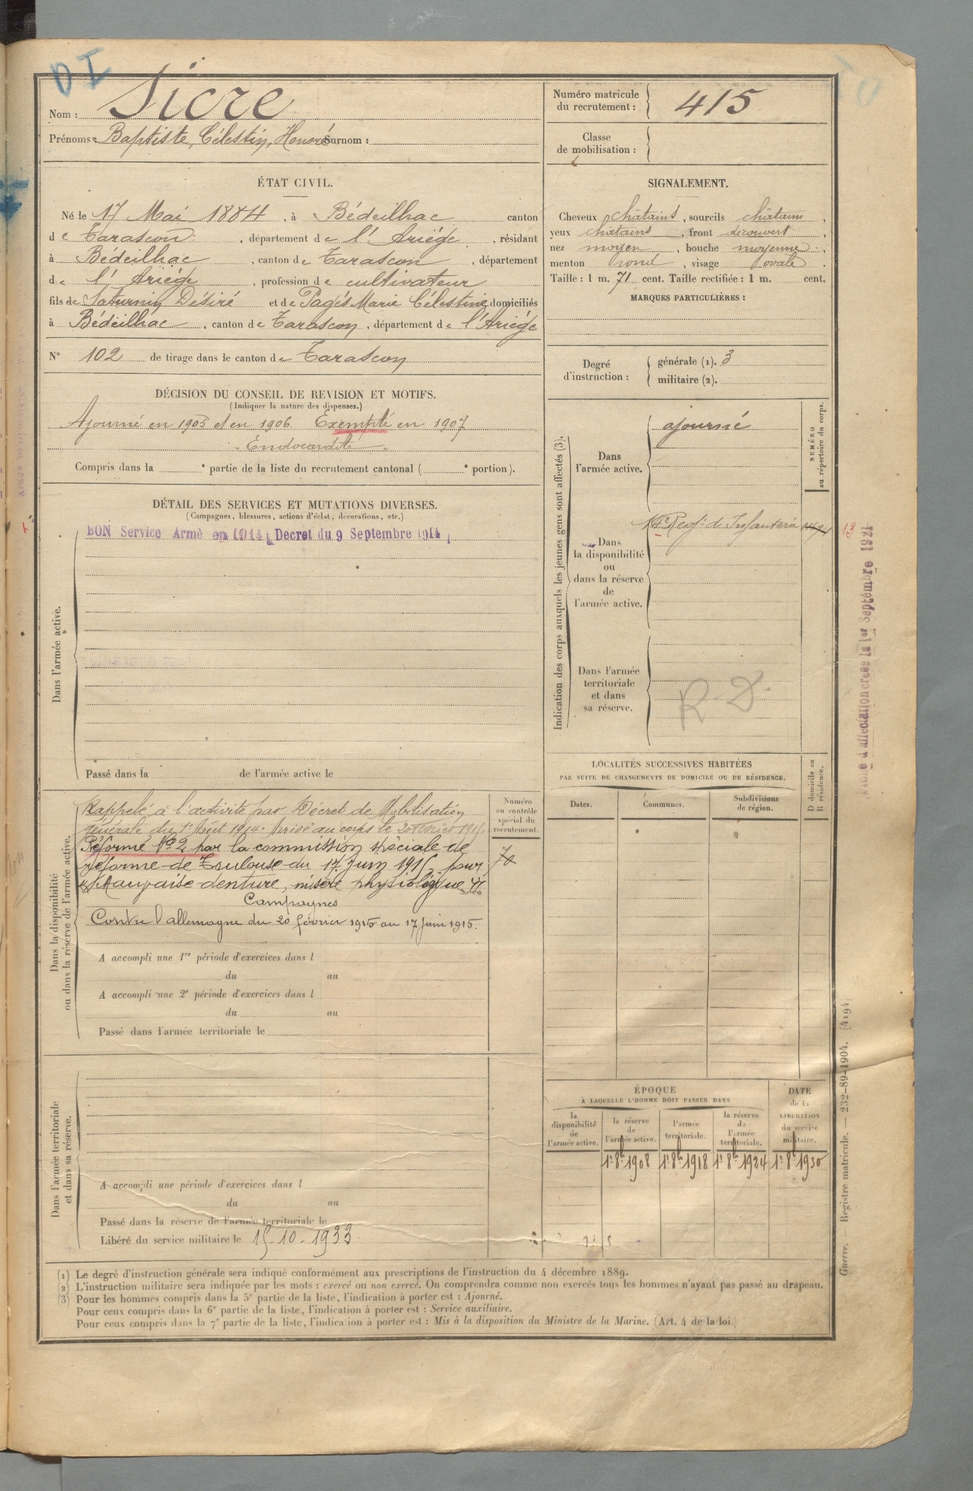 Nom : Sicre
Prénoms : Baptiste, Célestin, Honoré Surnom :
ÉTAT CIVIL.
Né le 17 Mai 1884, à Bédeilhac canton
de Tarascon, département de l'Ariège, résidant
à Bédeilhac, canton de Tarascon, département
de l'Ariège, profession de cultivateur
fils de Saturnin Désiré et de Pagès Marie Célestine, domiciliés
à Bédeilhac, canton de Tarascon, département de l'Ariège
N° 102 de tirage dans le canton de Tarascon
DÉCISION DU CONSEIL DE REVISION ET MOTIFS.
(Indiquer la nature des dispenses.)
Ajourné en 1905 et en 1906. Exempté en 1907
Endocardite
Compris dans la e partie de la liste du recrutement cantonal ( e portion).
DÉTAIL DES SERVICES ET MUTATIONS DIVERSES.
(Campagnes, blessures, actions d'éclat, décorations, etc.)
BON Service Armé en 1914, Decret du 9 Septembre 1914
Dans l'armée active.
Passé dans la de l'armée active le
Dans la disponibilité
ou dans la réserve de l'armée active.
Rappelé à l'activité par Décret de Mobilisation
générale du 1er Août 1914. Arrivé au corps le 20 février 1915.
Réformé N°2 par la commission spéciale de
réforme de Toulouse du 17 Juin 1915 pour
"Mauvaise denture, misère physiologique"
Campagnes
Contre l'allemagne du 20 février 1915 au 17 juin 1915.
A accompli une 1re période d'exercices dans l
du au
A accompli une 2e période d'exercices dans l
du au
Passé dans l'armée territoriale le
Numéro
au contrôle
spécial du
recrutement.
Dans l'armée territoriale
et dans sa réserve.
A accompli une période d'exercices dans l
du au
Passé dans la réserve de l'armée territoriale le
Libéré du service militaire le 15-10-1933
Numéro matricule
du recrutement : 415
Classe
de mobilisation :
SIGNALEMENT.
Cheveux chatains, sourcils chatains,
yeux chatains, front découvert,
nez moyen, bouche moyenne,
menton rond, visage ovale
Taille : 1 m. 71 cent. Taille rectifiée : 1 m. cent.
MARQUES PARTICULIÈRES :
Degré
d'instruction :
générale (1). 3
militaire (2).
Indication des corps auxquels les jeunes gens sont affectés (3).
NUMÉRO
au répertoire du corps.
Dans
l'armée active.
ajourné
Dans
la disponibilité
ou
dans la réserve
de
l'armée active.
Regt d'Infanterie
Dans l'armée
territoriale
et dans
sa réserve.
R D
LOCALITÉS SUCCESSIVES HABITÉES
PAR SUITE DE CHANGEMENTS DE DOMICILE OU DE RÉSIDENCE.
D domicile ou
R résidence.
Dates. Communes. Subdivisions
de région.
ÉPOQUE
À LAQUELLE L'HOMME DOIT PASSER DANS
DATE
de la
LIBÉRATION
du service
militaire.
la
disponibilité
de
l'armée active.
la réserve
de
l'armée active.
l'armée
territoriale.
la réserve
de
l'armée
territoriale.
1er 8bre 1908 1er 8bre 1918 1er 8bre 1924 1er 8bre 1930
(1) Le degré d'instruction générale sera indiqué conformément aux prescriptions de l'instruction du 4 décembre 1889.
(2) L'instruction militaire sera indiquée par les mots : exercé ou non exercé. On comprendra comme non exercés tous les hommes n'ayant pas passé au drapeau.
(3) Pour les hommes compris dans la 5e partie de la liste, l'indication à porter est : Ajourné.
Pour ceux compris dans la 6e partie de la liste, l'indication à porter est : Service auxiliaire.
Pour ceux compris dans la 7e partie de la liste, l'indication à porter est : Mis à la disposition du Ministre de la Marine. (Art. 4 de la loi.)
Guerre. — Registre matricule. — 232-89-1904. [4194]